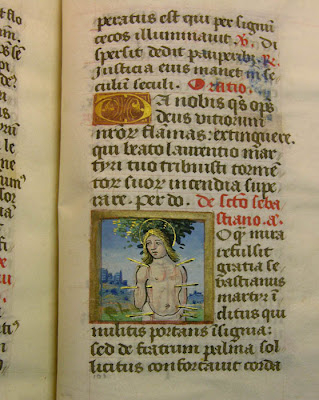 peratus est qui per signū
cecos illuminauit. V. Di
spersit dedit pauperibꝫ. R.
Justicia eius manet in se
culū seculi. Oratio.
DA nobis q̄s op̄s
deus vitiorum
nr̄or flamas: extinguere.
qui beato laurentio mar
tyri tuo tribuisti tormē
tor suor incendia supe
rare. per do. de sct̄o seba
stiano. a.
O q̄ mira
refulsit
gratia se
bastianus
martyr ī
clitus qui
militis portans īsignia:
sed de fratrum palma sol
licitus confortauit corda